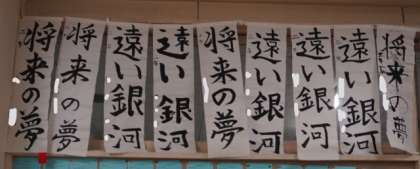 将来の夢
将来の夢
遠い銀河
遠い銀河
将来の夢
遠い銀河
遠い銀河
遠い銀河
将来の夢